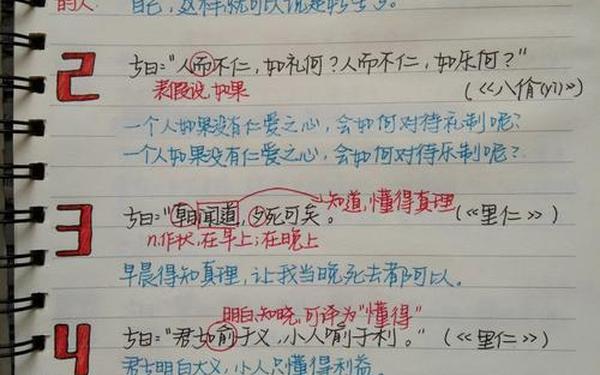 的人,自己,这样,就可以说是
2 子曰:"人而不仁,如礼何?人而不仁,如乐何?"
表假设,如果
(《八佾(yì)》)
一个人如果没有仁爱之心,会如何对待礼制呢?
一个人如果没有仁爱之心,会如何对待乐制呢?
知道,懂得真理
3 子曰:"朝闻道,夕死可矣。 (《里仁》)
n.作状,在早上;在晚上
早晨得知真理,让我当晚死去都可以。
明白、知晓,可译为"懂得"
4 子曰:"君子喻于义,小人喻于利。" (《里仁》)
君子明白大义,小人只懂得利益。